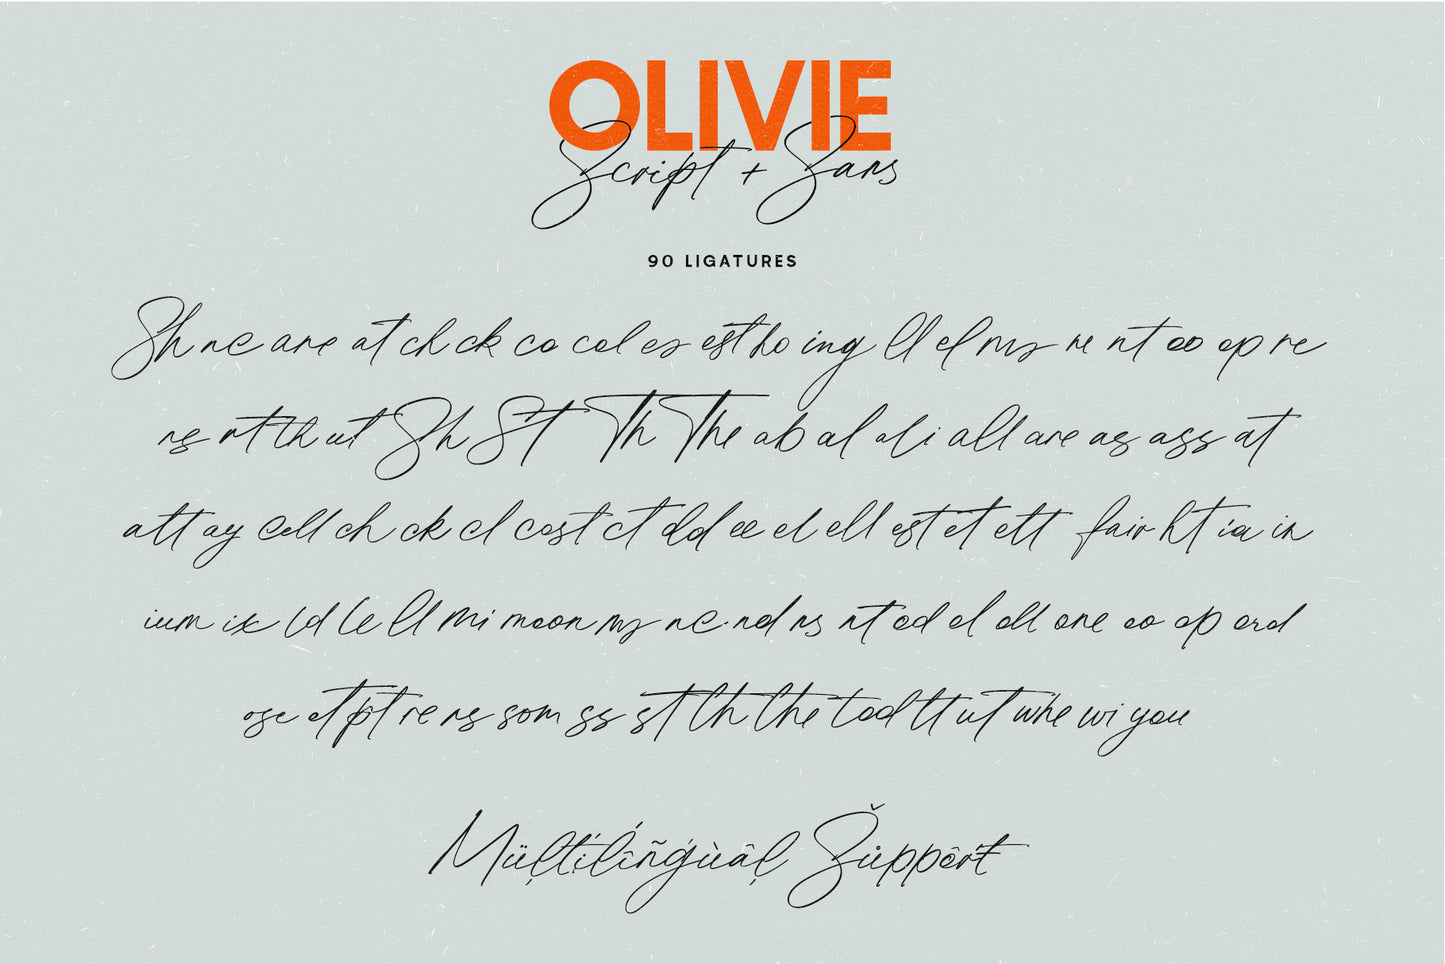 OLIVIE
Script + Sans
90 LIGATURES
Sh ne are at ch ck co col es est ho ing ll el my re nt oo op re
rs nt th ut Sh St Th The ab al ali all are as ass at
att ay cell ch ck cl cost ct dd ee el ell est et ett fair ht ia in
ium ix ld le ll mi moon my ne nd ns nt od ol oll one oo op ord
ose ot pt re rs som ss st th the tod tt ut whe wi you
Müļtíĺîñģùâļ Šůppêrŧ